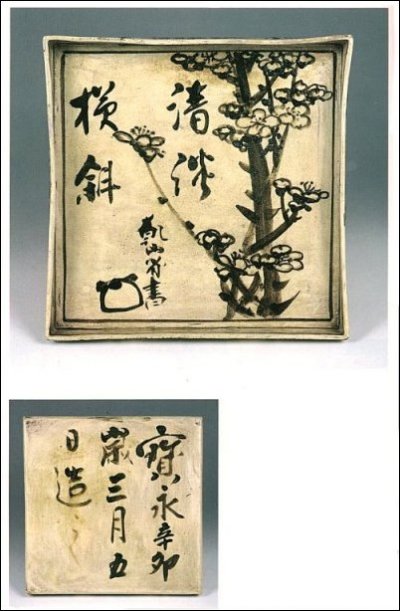 清浅
横斜
乾山省書
寳永辛卯
歳三月五
日造之